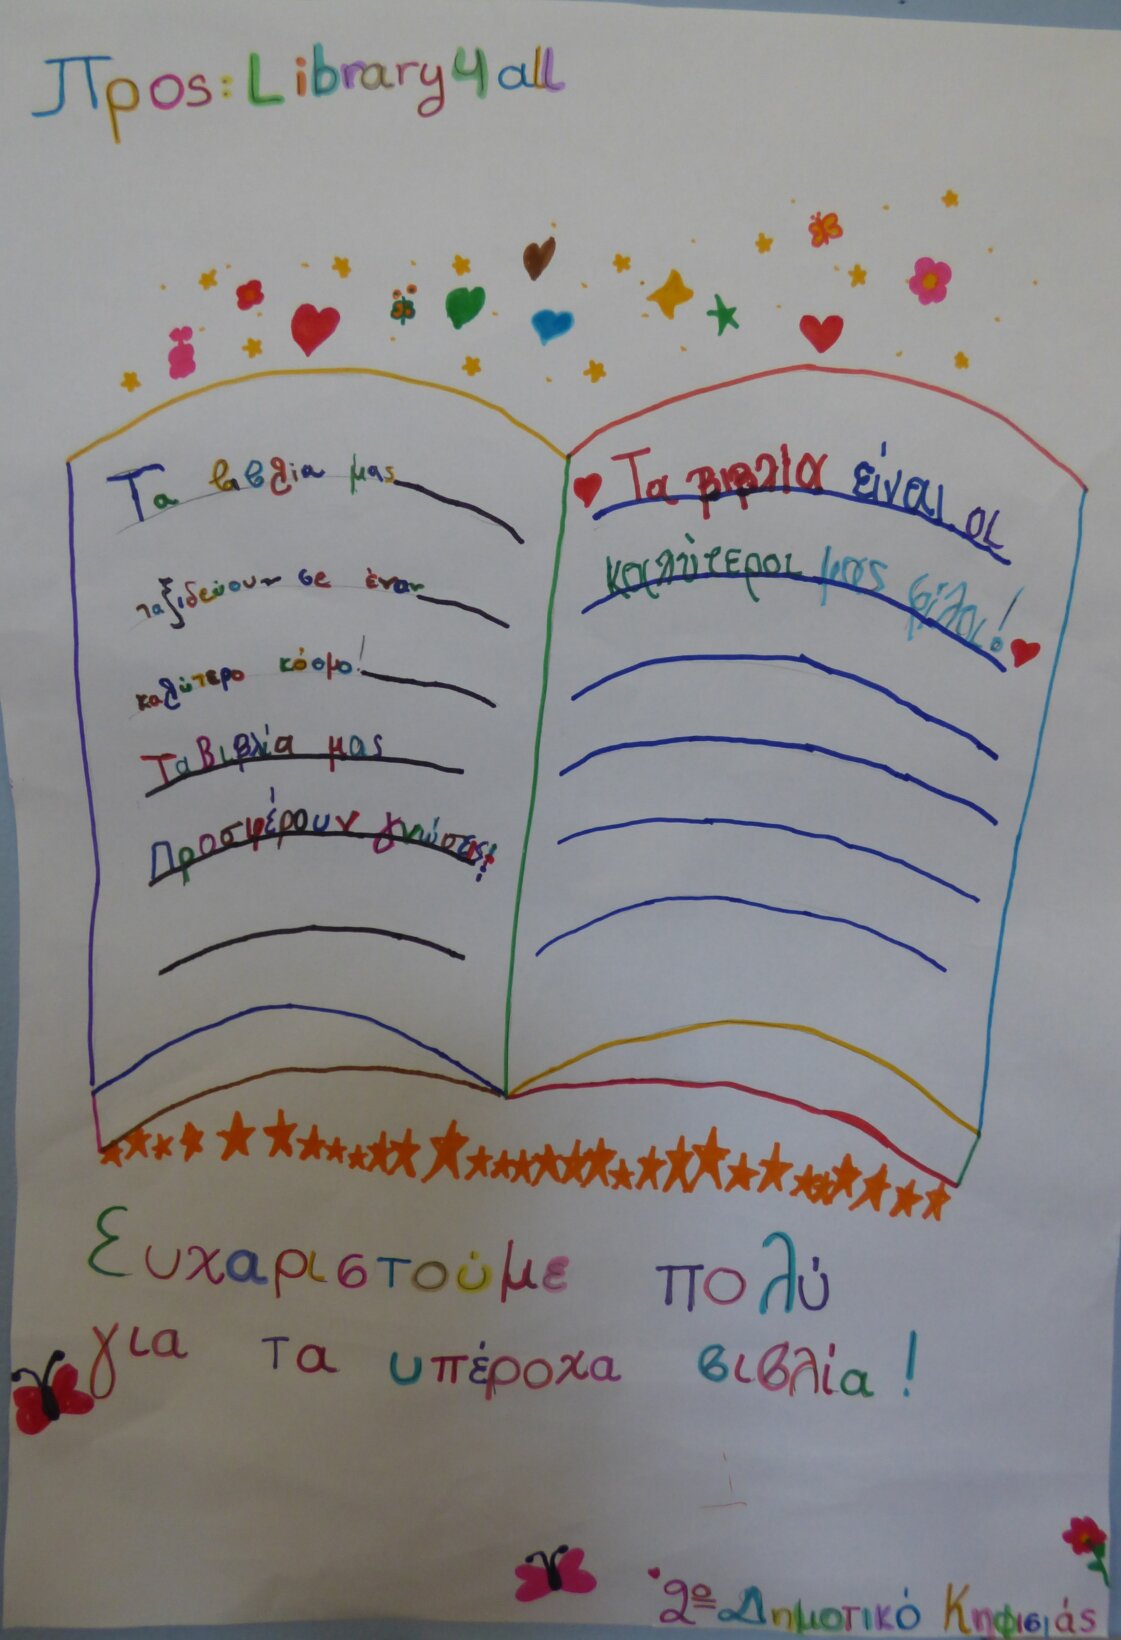 Προς: Library4all
Τα βιβλία μας
ταξιδεύουν σε έναν
καλύτερο κόσμο!
Τα βιβλία μας
Προσφέρουν γνώσεις!
Τα βιβλία είναι οι
καλύτεροι μας φίλοι!
Ευχαριστούμε πολύ
για τα υπέροχα βιβλία!
2º Δημοτικό Κηφισιάς